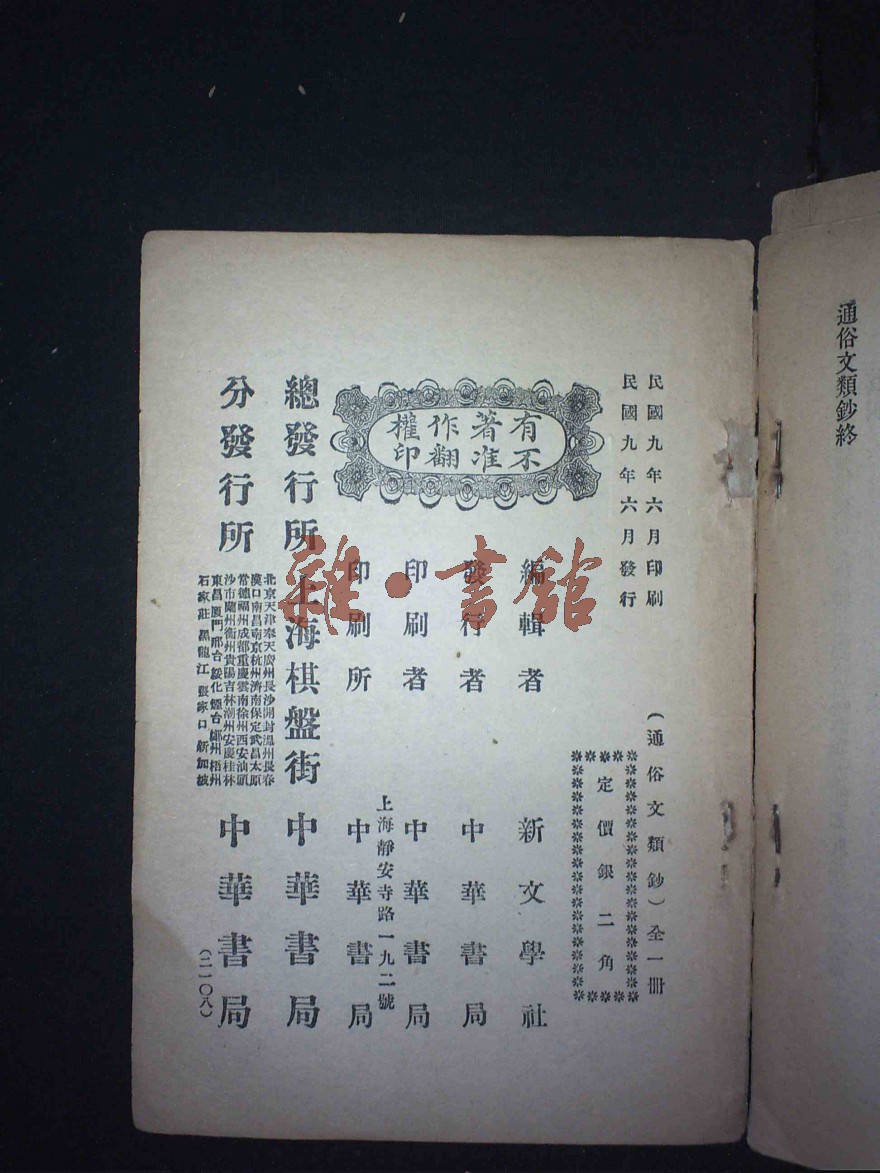 通俗文類鈔終
民國九年六月印刷
民國九年六月發行
(通俗文類鈔)全一冊
定價銀二角
有不
著准
作翻
權印
編輯者 新文學社
發行者 中華書局
印刷者 中華書局
上海靜安寺路一九二號
印刷所 中華書局
總發行所 上海棋盤街 中華書局
分發行所
北京天津奉天廣州長沙開封溫州長春
漢口南昌南京杭州濟南保定武昌太原
常德福州成都重慶雲南徐州西安汕頭
沙市蘭州衡州貴陽吉林潮州安慶桂林
東昌廈門邢台綏化煙台鄭州梧州
石家莊黑龍江張家口新加坡
中華書局
(二一〇八)
雜·書館